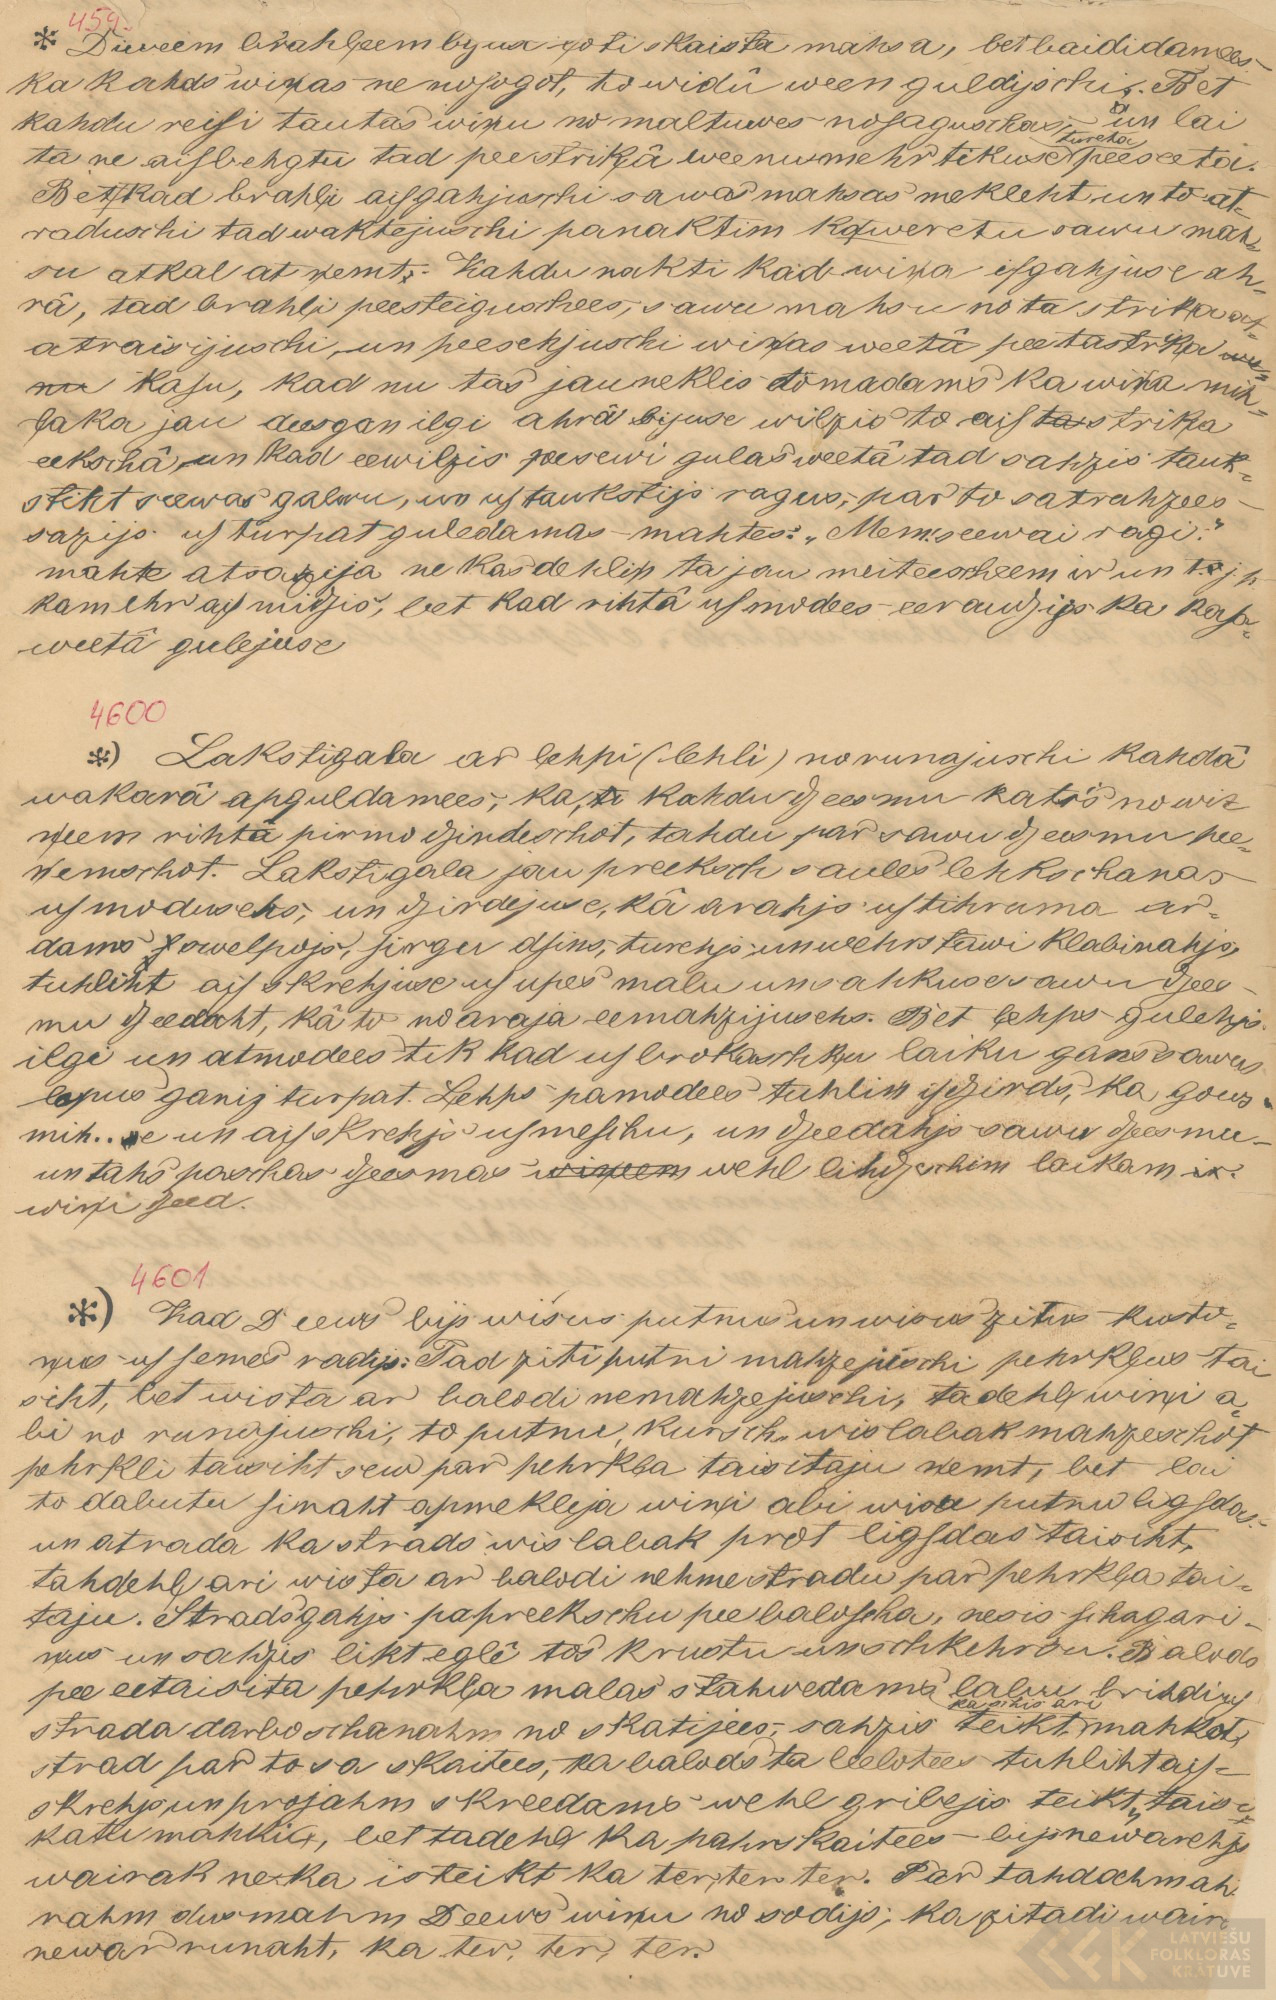 459.
* Diweem brahļeem byuse ļoti skaista mahsa, bet baididamees
ka kahds wiņas ne nosogot, to widû ween guldijschi. Bet
kahdu reisi tautas wiņu no maltuwes nosaguschas, un lai
tureta
ta ne aisbehgtu tad pee strikâ weenumehr tikuse peeseeta.
Bet kad brahļi aisgahjuschi sawas mahsas mekleht un to at-
raduschi tad waktejuschi panaktim ka weretu sawu mah-
su atkal at ņemt. Kahdu nakti kad wiņa isgahjuse ah-
râ, tad brahļi peesteiguschees, sawu mahsu no ta strika at-
atraisijuschi, un peesehjuschi wiņas weetâ pee ta strika
kasu, kad nu tas jauneklis domadams ka wiņa mih-
ļaka jau deesgan ilgi ahrâ bijuse wilzis to ais strika
eekschâ, un kad eewilzis pee sewi gulas weetâ tad sahzis tauk-
stiht seewas galwu, un ustaukstijs ragus, par to satrahzees
sazijs us turpat guledamas mahtes: „Mem. seewai ragi."
mahte atsazija ne kas dehliņ ta jau meiteescheem ir un
kamehr aismidzis, bet kad rihtâ usmodees eeraudzijs ka kasa
weetâ gulejuse
4600
*) Lakstigala ar ļehpi (lehli) norunajuschi kahdâ
wakarâ apguldamees, ka, kahdu dzeesmu katrs no wiz
ņeem rihtâ pirmo dzirdeschot, tahdu par sawu dzeesmu pee-
ņemschot. Lakstigala jau preeksch saules lehkschanas
usmodusehs, un dzirdejuse, kâ arahjs us tihruma ar-
dams swelpojs, sirgu dsins, turehjs un wehrstawi klabinahjs,
tuhliht aisskrehjuse us upes malu un sahkuse sawu dzees-
mu dzeedaht, kâ to no araja eemahzijusehs. Bet ļehps gulehjs
ilgi un atmodees tik kad us brokaschķu laiku gans sawas
lopus ganij turpat. Ļehps pamodees tuhlin isdzirds, ka gows
mih... e un aisskrehjs us meschu, un dzeedahjs sawu dzeesmu
un tahs paschas dzeesmas wehl lihdz schim laikam
wiņi dzeed.
4601
*) Kad Deews bij wisus putnus un wisus zitus kusto-
ņus us semes radijs: Tad ziti putni mahzejuschi pehrkļus tai
siht, bet wista ar balodi nemahzejuschi, tadehļ wiņi a-
bi no runajuschi, to putnu, kursch wislabak mahzeschot
pehrkli taisiht sew par pehrkļa taisitaju ņemt, bet lai
to dabutu sinaht apmekleja wiņi abi wisu putnu ligsdas
un atrada ka strads wislabak prot ligsdas taisiht,
tahdehļ ari wista ar balodi nehme stradu par pehrkļa tai-
taju. Strads gahjs papreekschu pee baloscha, nesis schagari-
ņus un sahzis likt eglê tos krustu un schkehrsu. Balods
pee eetaisita pehrkļa malas stahwedams labu brihdi us
ka schis ari
strada darboschanahm no skatijees, sahzis teikt mahkot,
strad par to sa skaitees, ka balods ta leelotees tuhliht ais-
skrehjs un projahm skreedams wehl gribejis teikt „tais
kâ tu mahki", bet tadehļ ka pahrskaitees bijs newarehjs
wairak ne ka isteikt ka ter, ter ter. Par tahdahm ah
rahm dusmahm Deews wiņu no sodijs, ka zitadi wair
newar runaht, ka ter, ter, ter.
LATVIEŠU
FOLKLORAS
KRĀTUVE